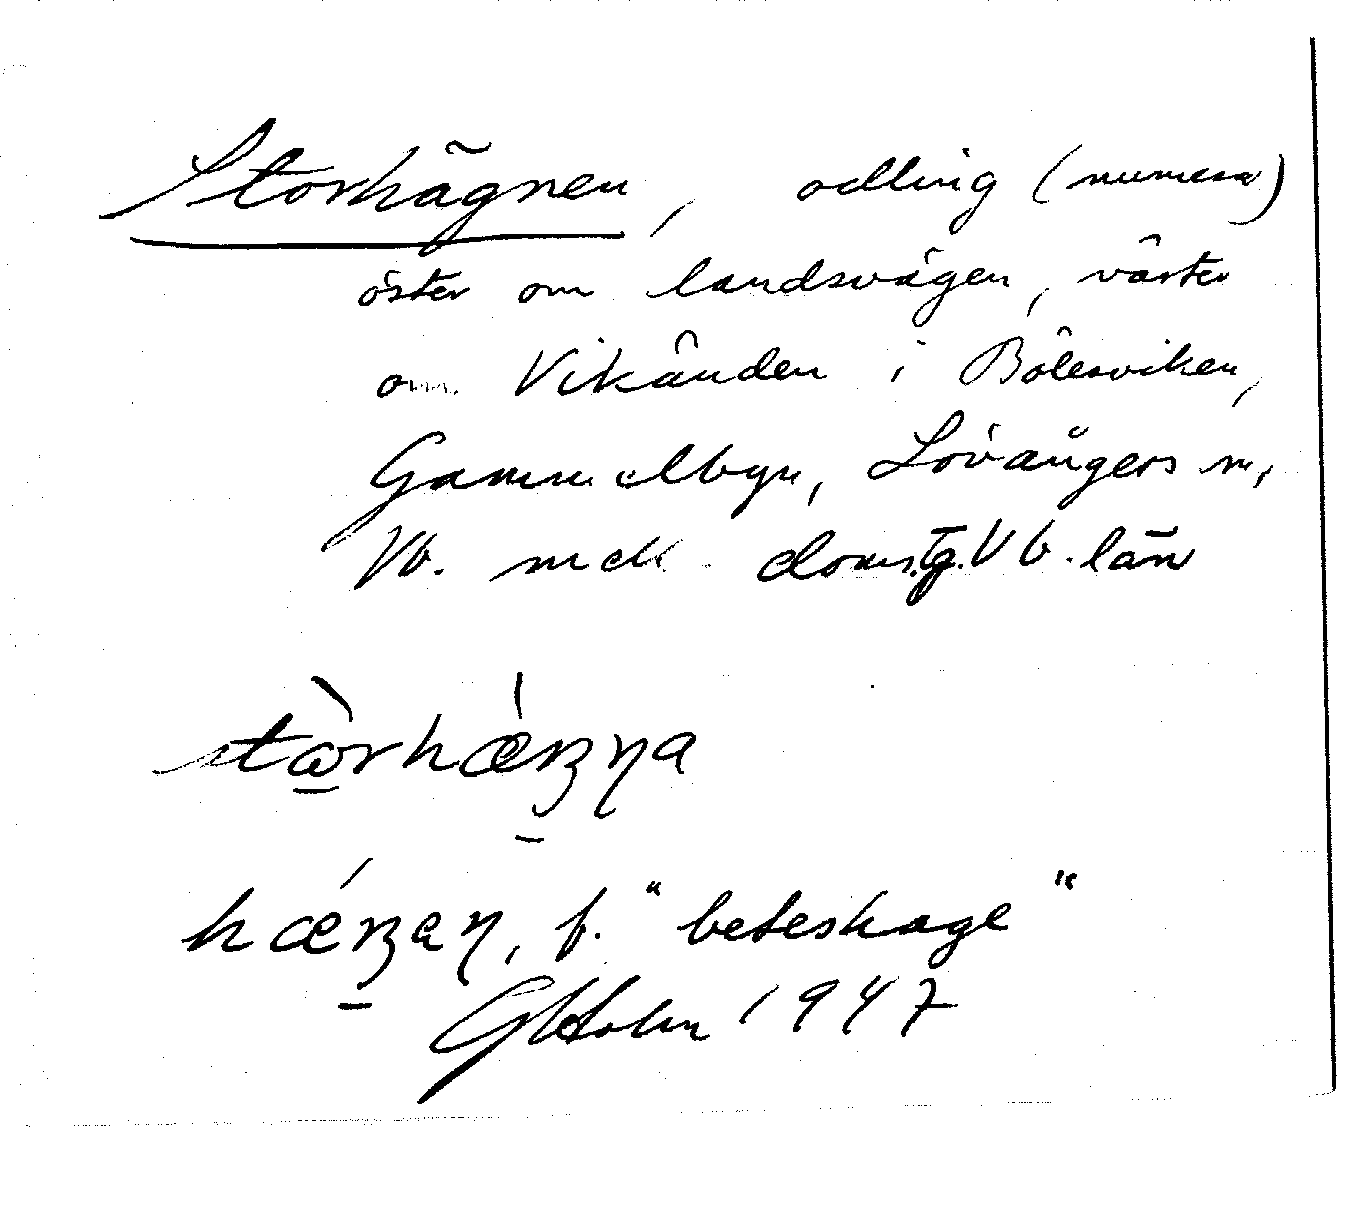 Storhägnen, odling (numera)
öster om landsvägen, väster
om Vikänden i Bölesviken,
Gammelbyn, Lövångers sn,
Vb. mell. doms.g. Vb. län
f. "beteshage"
GHolm 1947